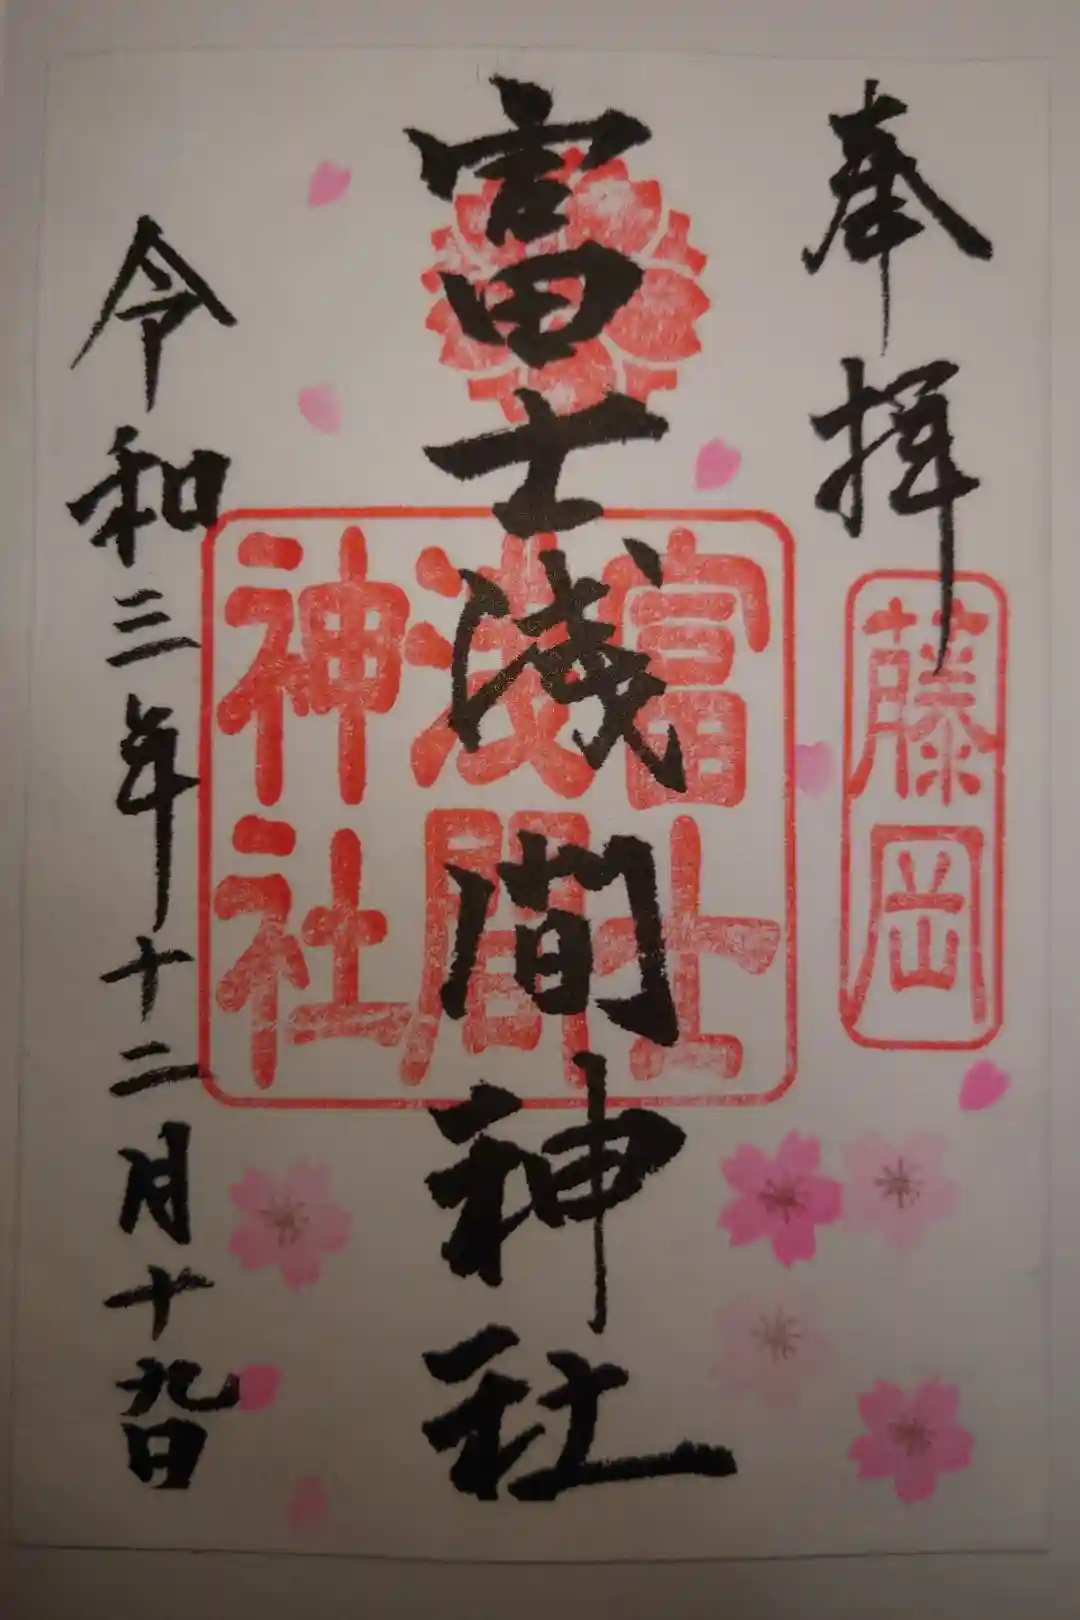 奉拝
藤岡
富士浅間神社
富士
浅間
神社
令和三年十二月十九日